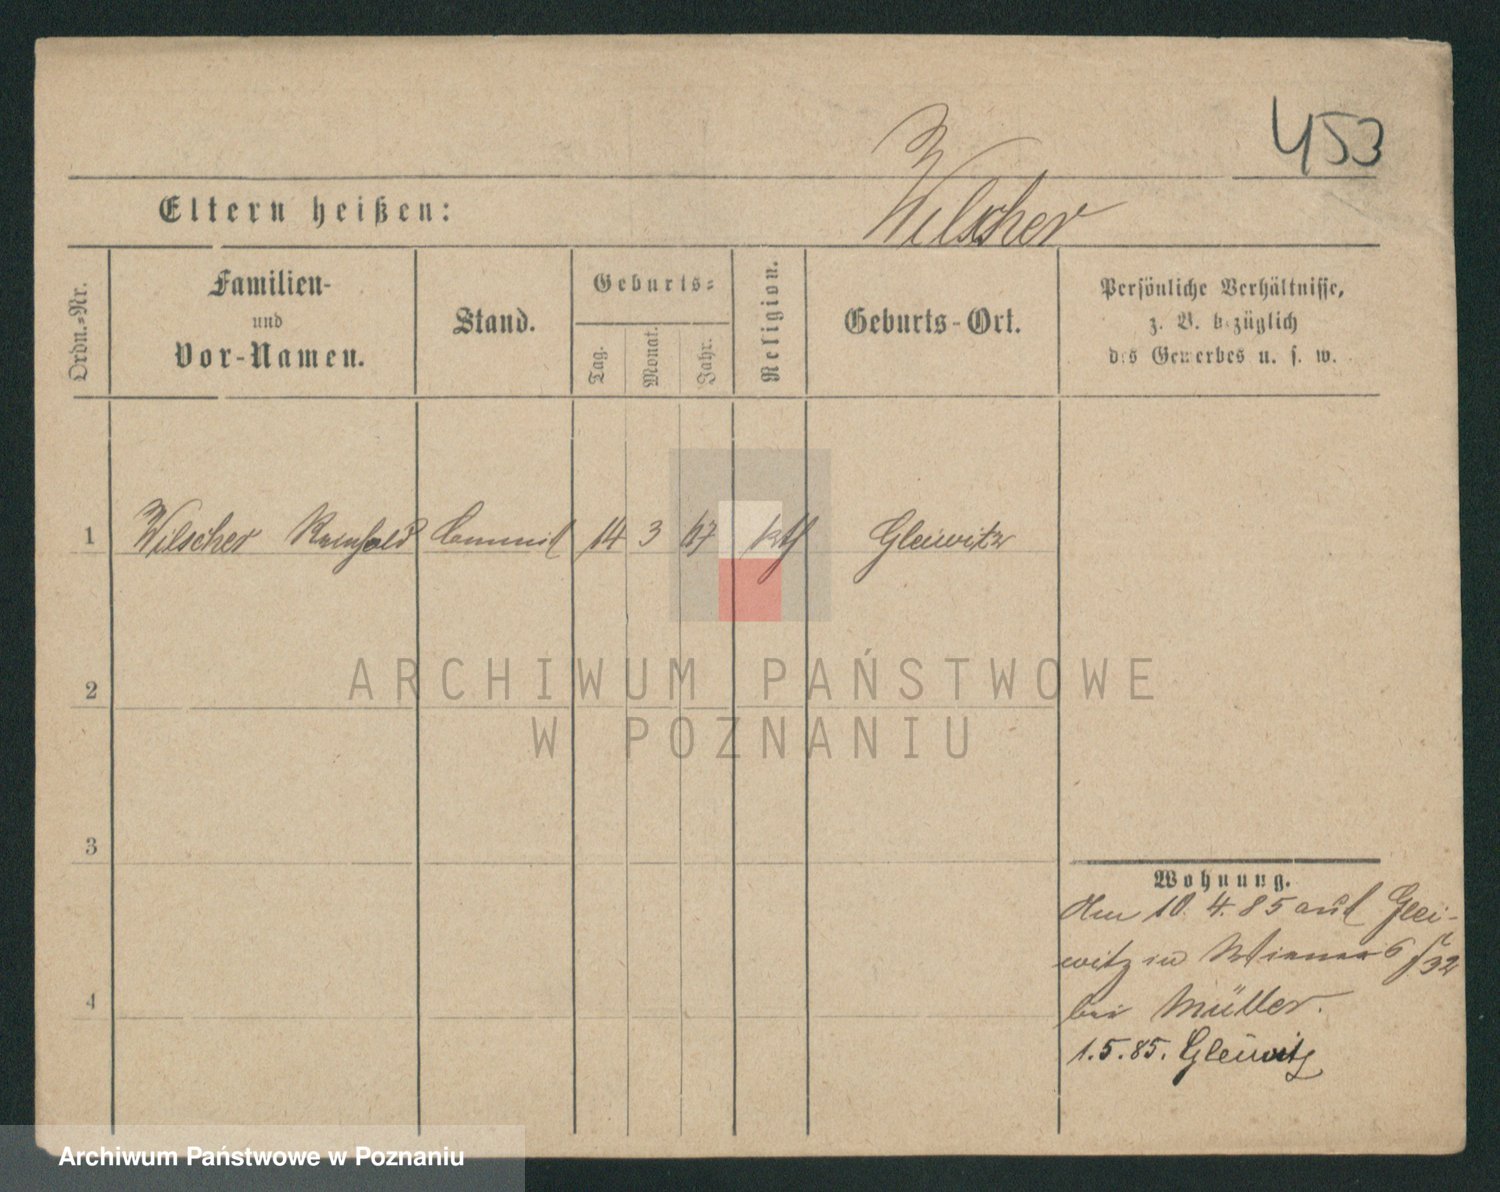 453
Wilscher
Eltern heißen:
Ordn.-Nr.
Familien-
und
Vor-Namen.
Stand.
Geburts-
Tag.
Monat.
Jahr.
Religion.
Geburts-Ort.
Persönliche Verhältnisse,
z. B. bezüglich
des Gewerbes u. s. w.
1 Wilscher Reinhold Commis 14 3 67 kth Gleiwitz
2
3
4
Wohnung.
Am 10. 4. 85 aus Glei-
witz in
bei Müller.
1.5.85. Gleiwitz
ARCHIWUM PAŃSTWOWE
W POZNANIU
Archiwum Państwowe w Poznaniu